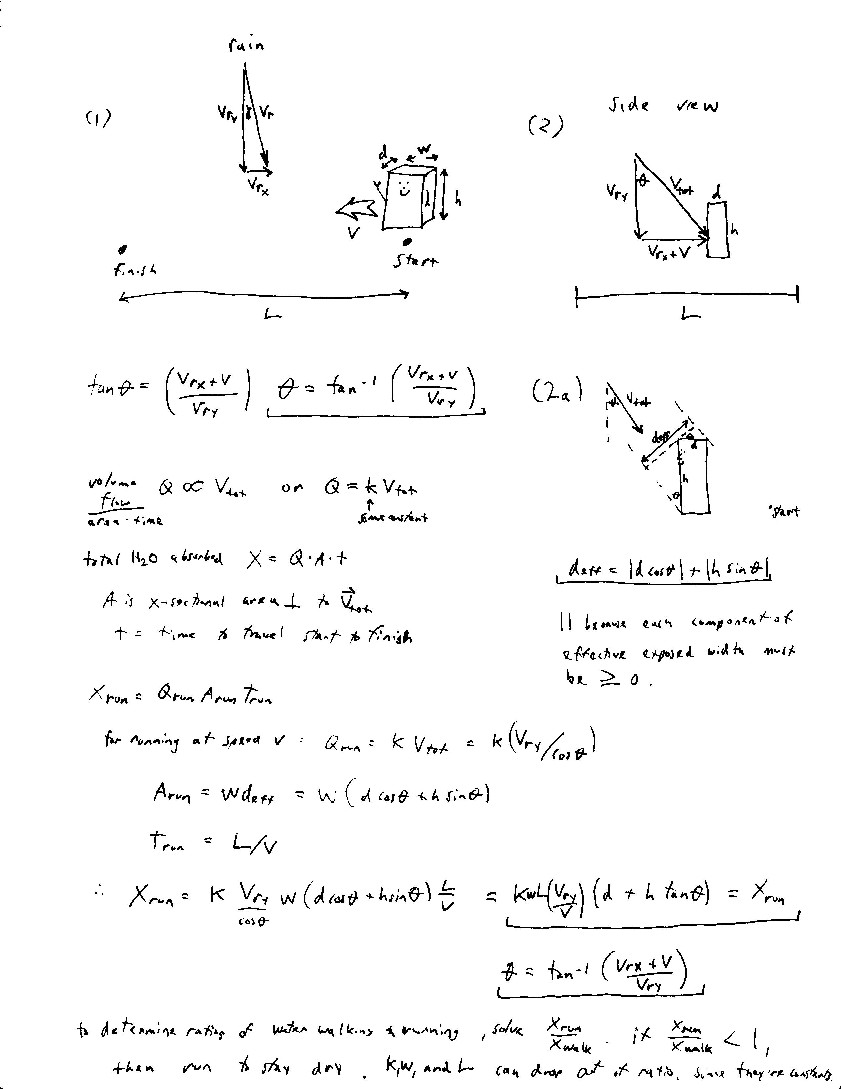 rain
(1)
Vry γ Vr
Vrx
d w
h
V
finish
start
L
(2)
side view
Vry θ Vtot d
h
Vrx+V
L
tan θ = (Vrx+V / Vry) θ = tan⁻¹ (Vrx+V / Vry)
(2a)
Vtot
deff
θ
d
h
θ
start
volume flow / area · time Q ∝ Vtot or Q = k Vtot
↑ some constant
total H2O absorbed X = Q · A · t
A is x-sectional area ⊥ to V⃗tot
t = time to travel start to finish
deff = |d cosθ| + |h sinθ|
|| because each component of
effective exposed width must
be ≥ 0.
Xrun = Qrun Arun Trun
for running at speed V : Qrun = K Vtot = K (Vry/cosθ)
Arun = Wdeff = W (d cosθ + h sinθ)
Trun = L/V
∴ Xrun = K Vry/cosθ W (d cosθ + h sinθ) L/V = KWL(Vry/V) (d + h tanθ) = Xrun
θ = tan⁻¹ (Vrx + V / Vry)
to determine ratios of water walking & running, solve Xrun/Xwalk. if Xrun/Xwalk < 1,
then run to stay dry. K, W, and L can drop out of ratio, since they're constants.